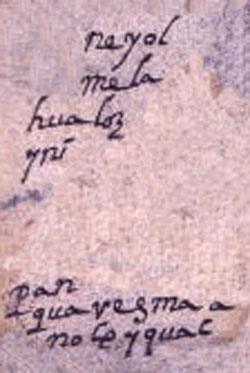 neyol
mela
hualoz
yni
pan
quaresma a
noço yquac